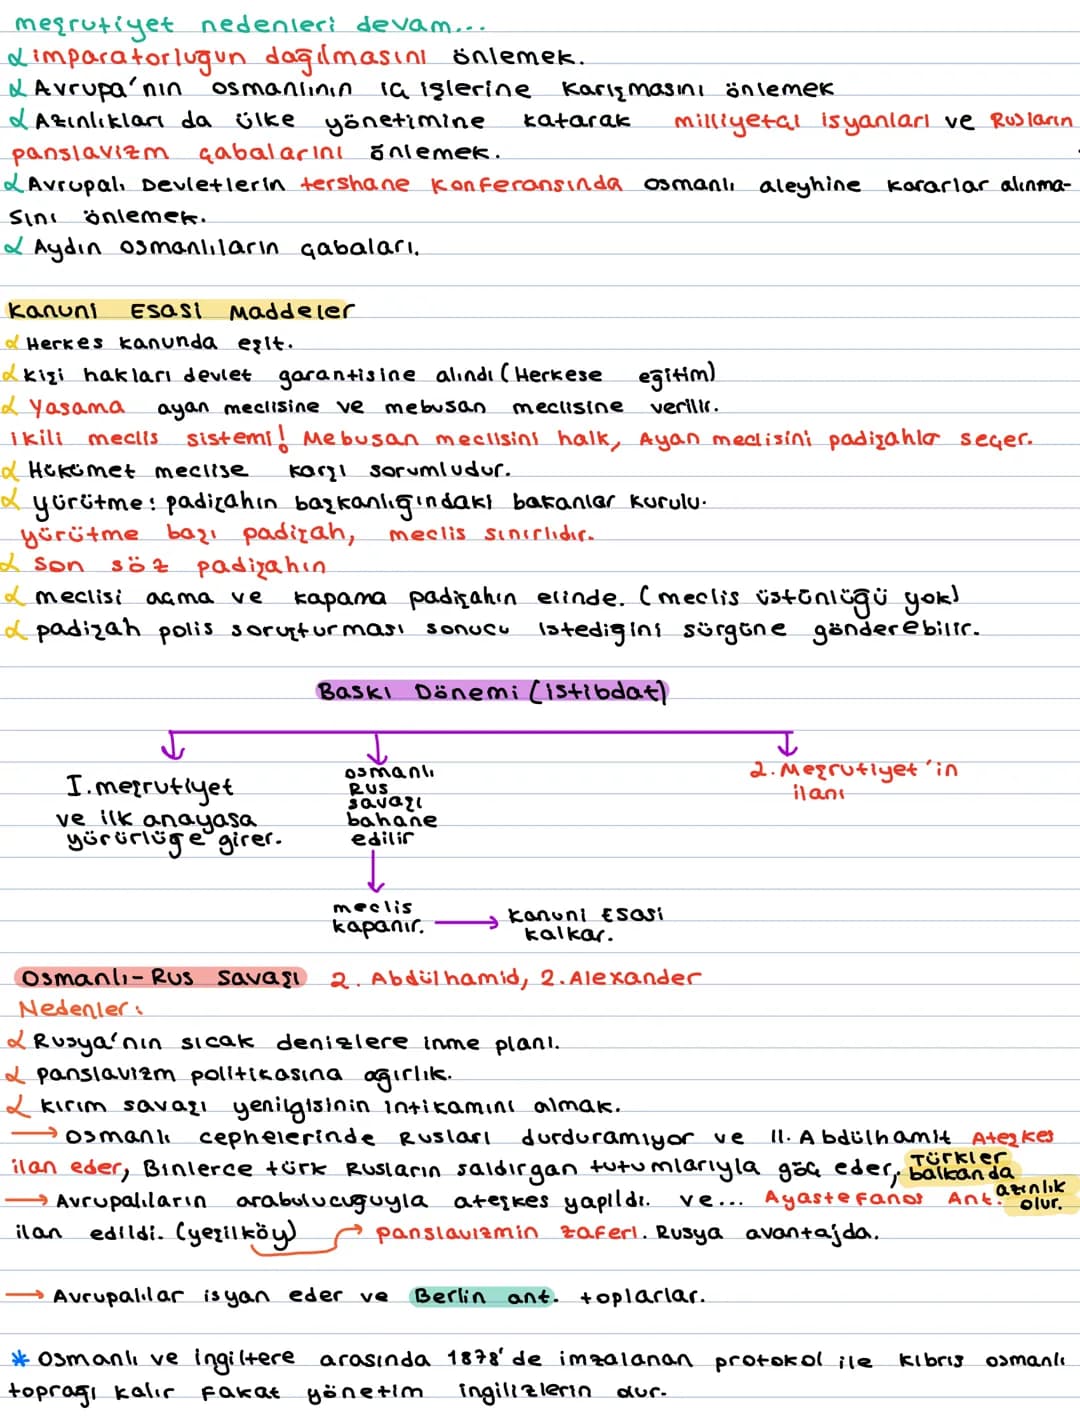 meşrutiyet nedenleri devam...
imparatorlugun dağılmasını önlemek.
Avrupa'nın osmanlının iç işlerine karışmasını önlemek
Azınlıkları da ülke yönetimine katarak milliyetçi isyanları ve Rusların
panslavizm çabalarını önlemek.
Avrupalı Devletlerin tershane konferansında osmanlı aleyhine kararlar alınma-
sını önlemek.
Aydın osmanlıların çabaları.
Kanuni Esasi Maddeler
Herkes kanunda eşit.
kişi hakları devlet garantisine alındı (Herkese eğitim)
Yasama ayan meclisine ve mebusan meclisine verilir.
ikili meclis sistemi! Mebusan meclisini halk, Ayan meclisini padişahlar seçer.
Hükümet meclise karşı sorumludur.
yürütme: padişahın başkanlığındaki bakanlar kurulu.
yürütme başı padişah, meclis sınırlıdır.
Son söz padişahın
meclisi açma ve kapama padişahın elinde. (meclis üstünlüğü yok)
padişah polis soruşturması sonucu istediğini sürgüne gönderebilir.
Baskı Dönemi (istibdat)
I. meşrutiyet
ve ilk anayasa
yürürlüğe girer.
osmanlı
Rus
savaşı
bahane
edilir
2. Meşrutiyet'in
ilanı
meclis
kapanır.
kanuni Esasi
kalkar.
Osmanlı-Rus Savaşı 2. Abdülhamid, 2. Alexander
Nedenler:
Rusya'nın sıcak denizlere inme planı.
panslavizm politikasına ağırlık.
kırım savaşı yenilgisinin intikamını almak.
→ osmanlı cephelerinde Rusları durduramıyor ve II. Abdülhamit Ateşkes
ilan eder, Binlerce türk Rusların saldırgan tutumlarıyla göç eder, Türkler
balkanda
azınlık
olur.
→ Avrupalıların arabulucuğuyla ateşkes yapıldı. ve... Ayastefanos Ant.
ilan edildi. (yeşilköy) → panslavizmin zaferi. Rusya avantajda.
→ Avrupalılar isyan eder ve Berlin ant. toplarlar.
* osmanlı ve ingiltere arasında 1878'de imzalanan protokol ile kıbrıs osmanlı
toprağı kalır fakat yönetim ingilizlerin olur.